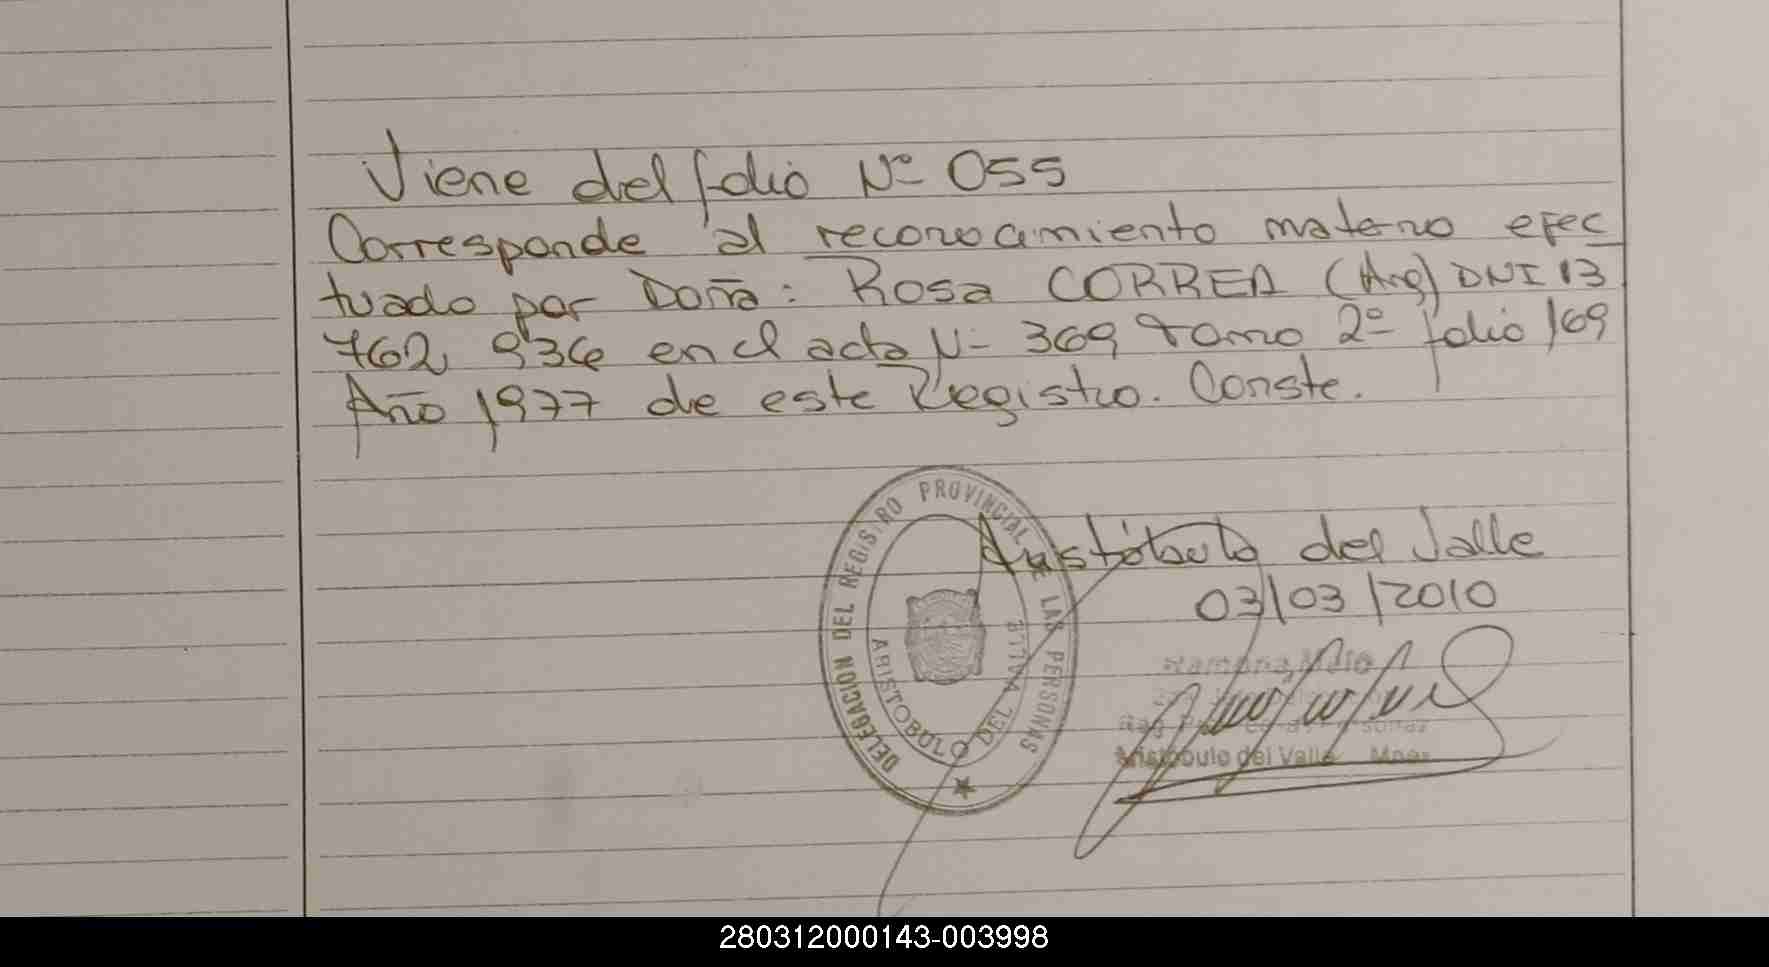 Viene del folio Nº 055
Corresponde al reconocimiento materno efec
tuado por Doña: Rosa CORREA (Arg) DNI 13
762 936 en el acta Nº 369 tomo 2º folio 169
Año 1977 de este Registro. Conste.
DELEGACION DEL REGISTRO PROVINCIAL DE LAS PERSONAS
ARISTOBULO DEL VALLE
Aristóbulo del Valle
03/03/2010
Aristóbulo del Valle Mnes
280312000143-003998